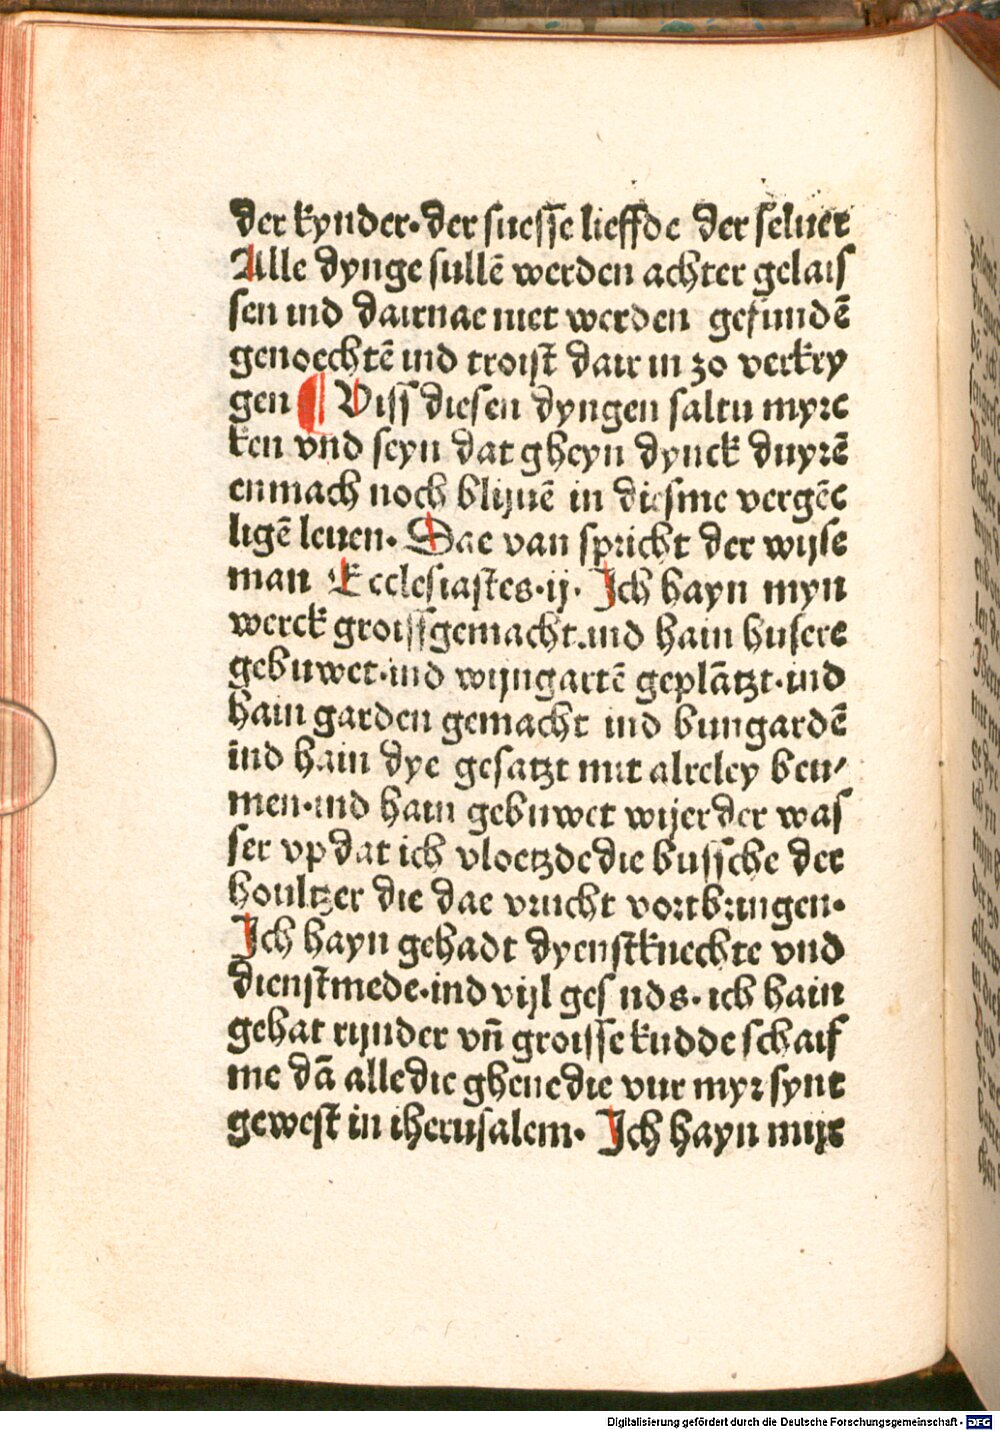 der kynder·der suesse lieffde der seluer
Alle dynge sullē werden achter gelais
sen ind dairnae niet werden gefundē
genoechtē ind troist dair in zo verkry
gen ¶ Viss diesen dyngen saltu myrc
ken vnd seyn dat gheyn dynck duyrē
enmach noch blijuē in diesme vergēc
ligē leuen· Dae van spricht der wijse
man Ecclesiastes·ij· Ich hayn myn
werck groissgemacht.ind hain husere
gebuwet·ind wijngartē geplātzt·ind
hain garden gemacht ind bungardē
ind hain dye gesatzt mit alreley beu⸗
men·ind hain gebuwet wijer der was
ser vp dat ich vloetzde die bussche der
houltzer die dae vrucht vortbringen·
Ich hayn gehadt dyenstknechte vnd
dienstmede·ind vijl ges nds· ich hain
gehat rijnder vn̄ groisse kudde schaif
me dā alle die ghene die vur myr synt
gewest in iherusalem· Ich hayn mijr
Digitalisierung gefördert durch die Deutsche Forschungsgemeinschaft - DFG